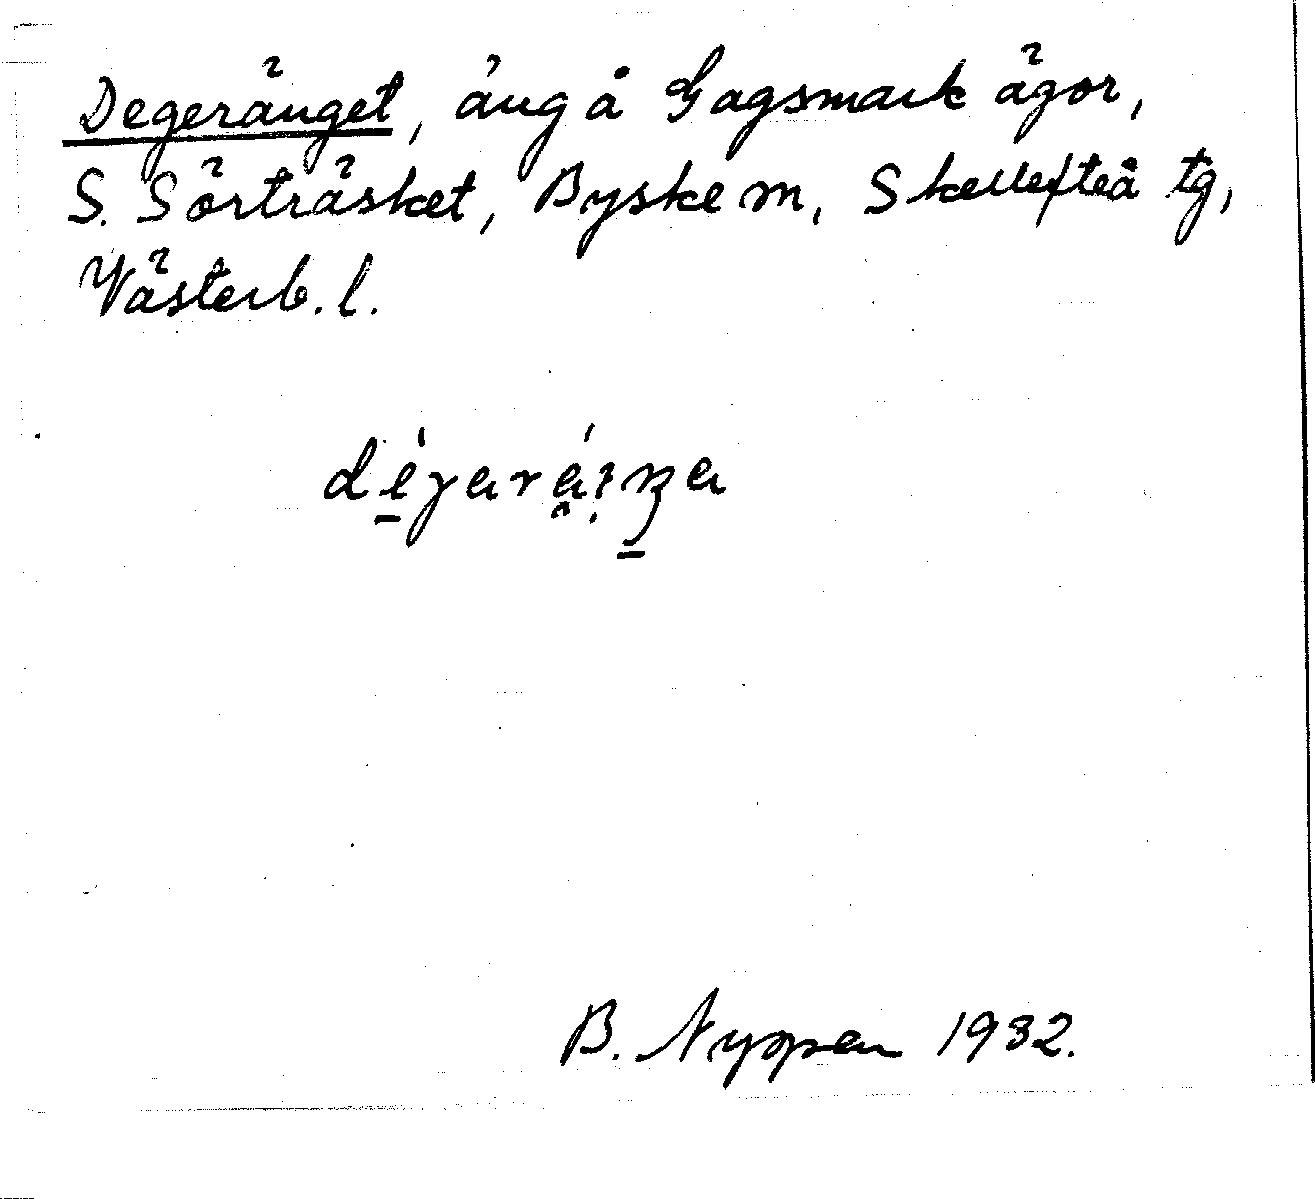 Degeränget, äng å Gagsmark ägor,
S. Sörträsket, Byske sn, Skellefteå tg,
Västerb. l.
B. Nyppen 1932.